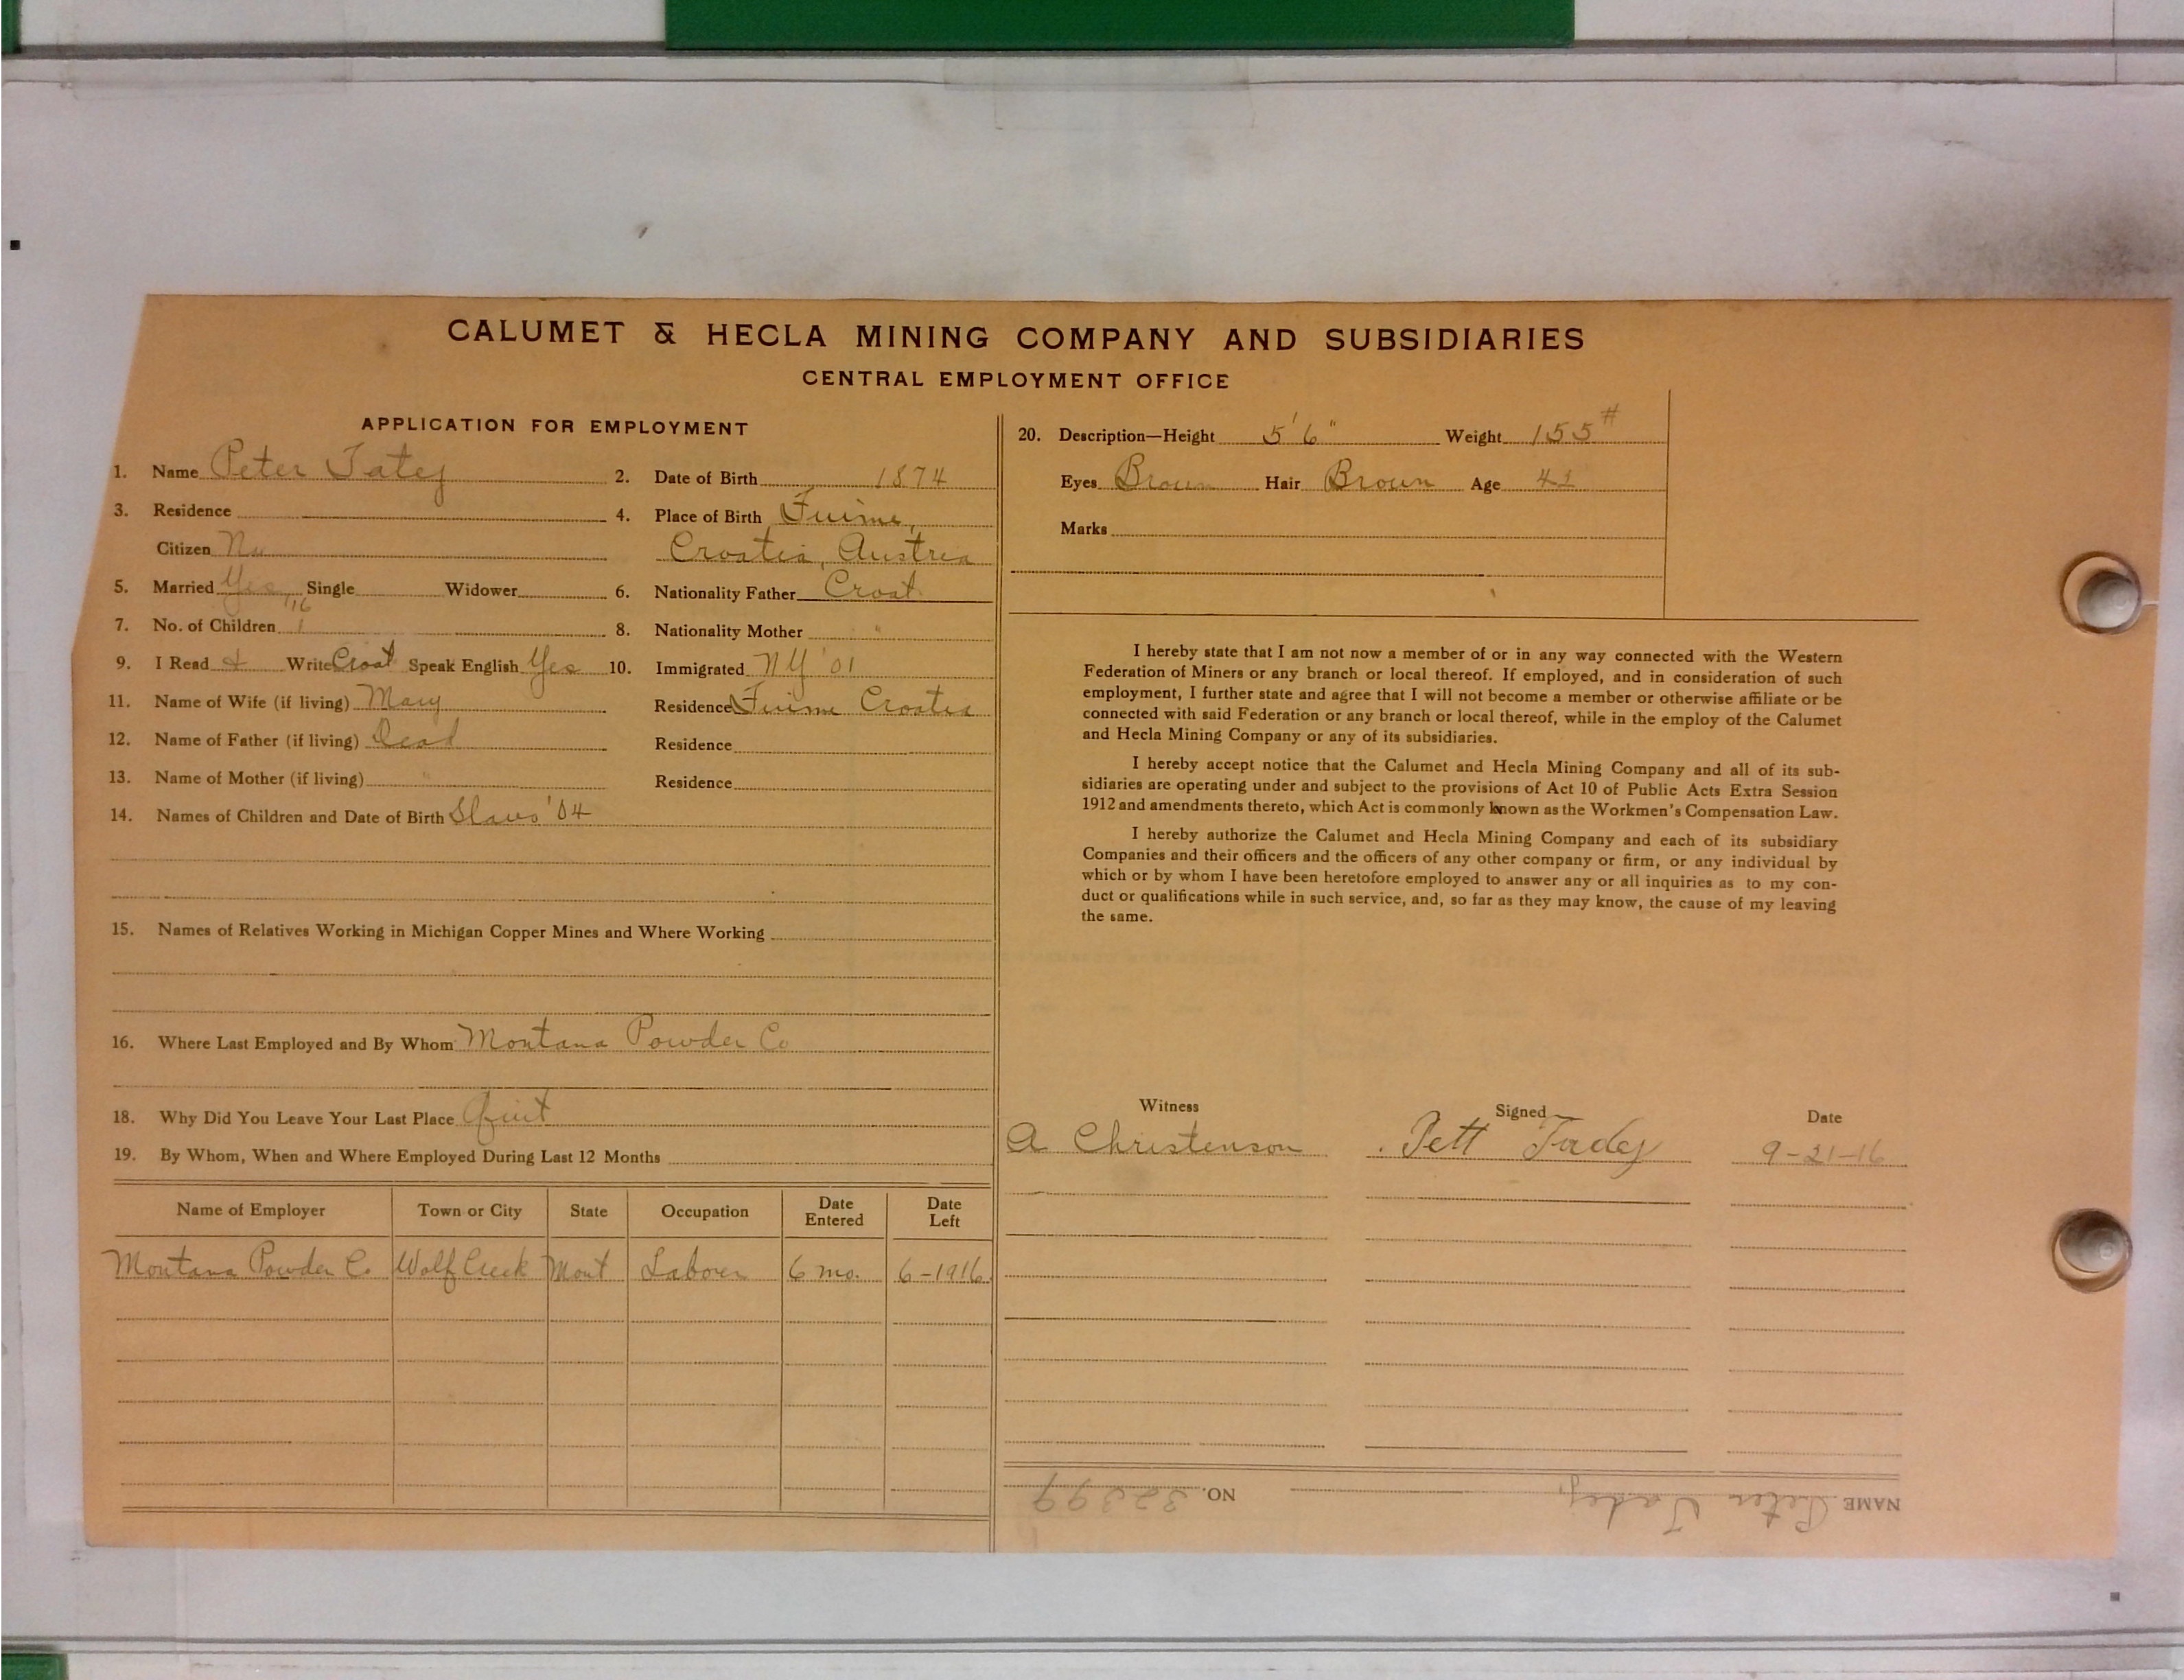 CALUMET & HECLA MINING COMPANY AND SUBSIDIARIES
CENTRAL EMPLOYMENT OFFICE
APPLICATION FOR EMPLOYMENT
1. Name Peter Tatej 2. Date of Birth 1874
3. Residence 4. Place of Birth Fuime,
Citizen No Croatia, Austria
5. Married Yes '16 Single Widower 6. Nationality Father Croat
7. No. of Children 1 8. Nationality Mother "
9. I Read & Write Croat Speak English Yes 10. Immigrated NY '01
11. Name of Wife (if living) Mary Residence Fuime Croatia
12. Name of Father (if living) Dead Residence
13. Name of Mother (if living) " Residence
14. Names of Children and Date of Birth Slavo '04
15. Names of Relatives Working in Michigan Copper Mines and Where Working
16. Where Last Employed and By Whom Montana Powder Co
18. Why Did You Leave Your Last Place Quit
19. By Whom, When and Where Employed During Last 12 Months
Name of Employer Town or City State Occupation Date Entered Date Left
Montana Powder Co Wolf Creek Mont Laborer 6 mo. 6-1916
20. Description—Height 5' 6" Weight 155#
Eyes Brown Hair Brown Age 42
Marks
I hereby state that I am not now a member of or in any way connected with the Western
Federation of Miners or any branch or local thereof. If employed, and in consideration of such
employment, I further state and agree that I will not become a member or otherwise affiliate or be
connected with said Federation or any branch or local thereof, while in the employ of the Calumet
and Hecla Mining Company or any of its subsidiaries.
I hereby accept notice that the Calumet and Hecla Mining Company and all of its sub-
sidiaries are operating under and subject to the provisions of Act 10 of Public Acts Extra Session
1912 and amendments thereto, which Act is commonly known as the Workmen's Compensation Law.
I hereby authorize the Calumet and Hecla Mining Company and each of its subsidiary
Companies and their officers and the officers of any other company or firm, or any individual by
which or by whom I have been heretofore employed to answer any or all inquiries as to my con-
duct or qualifications while in such service, and, so far as they may know, the cause of my leaving
the same.
Witness Signed Date
A Christenson Pett Tadej 9-21-16
NAME Peter Tadej, NO. 32399